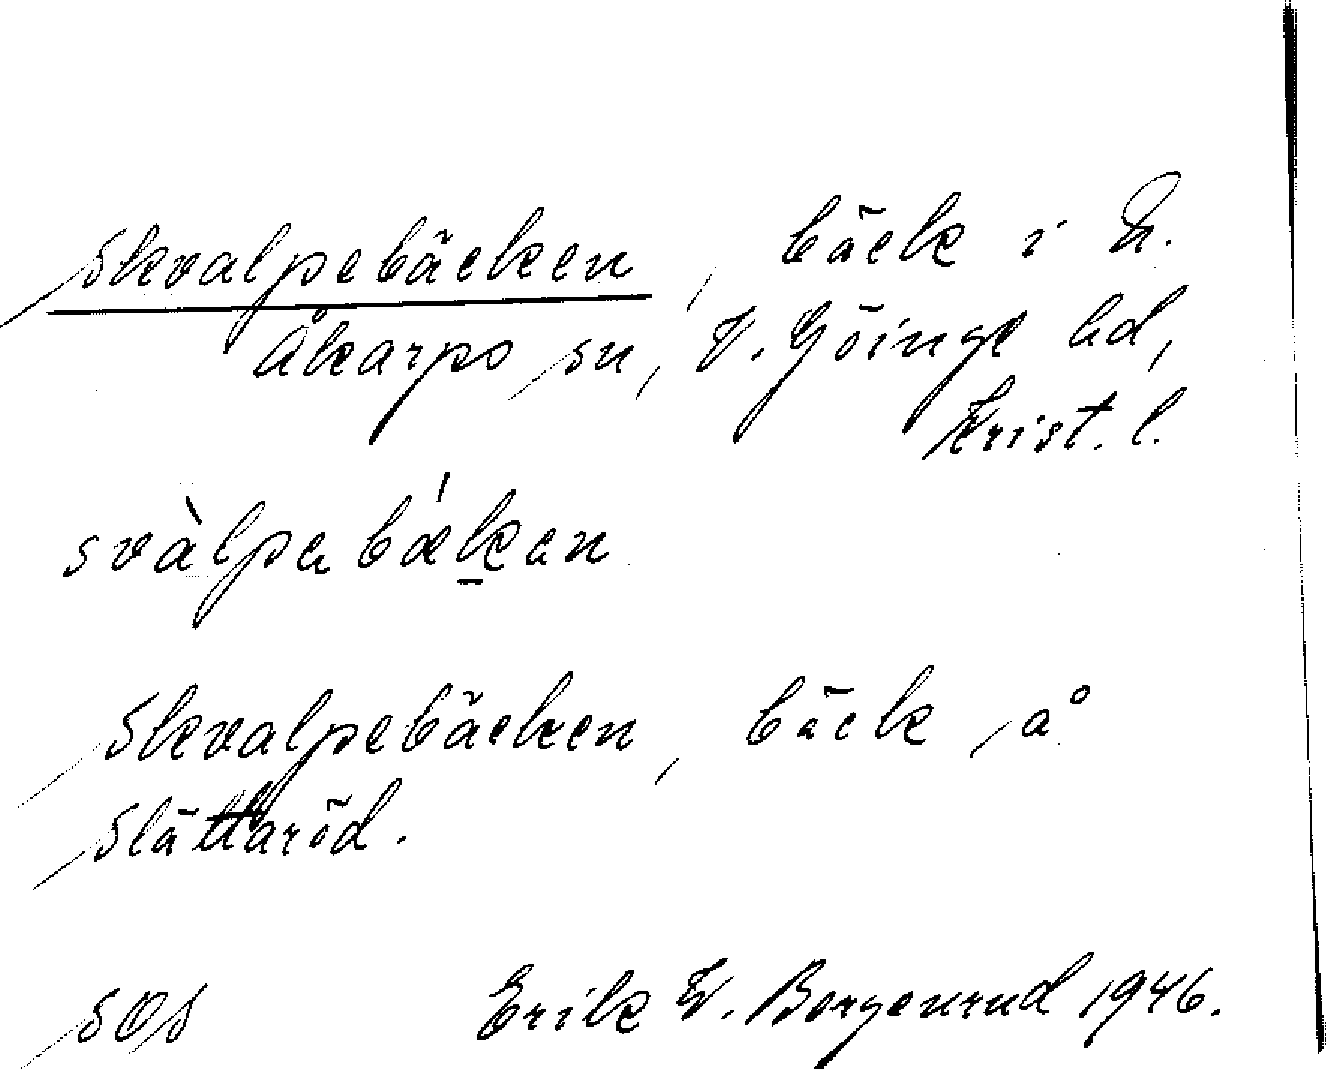 Skvalpebäcken, bäck i N.
Åkarps sn, V. Göinge hd,
Krist. l.
svàlpabǽkan
Skvalpebäcken, bäck å
Slättaröd.
SOS Erik W. Borgenrud 1946.